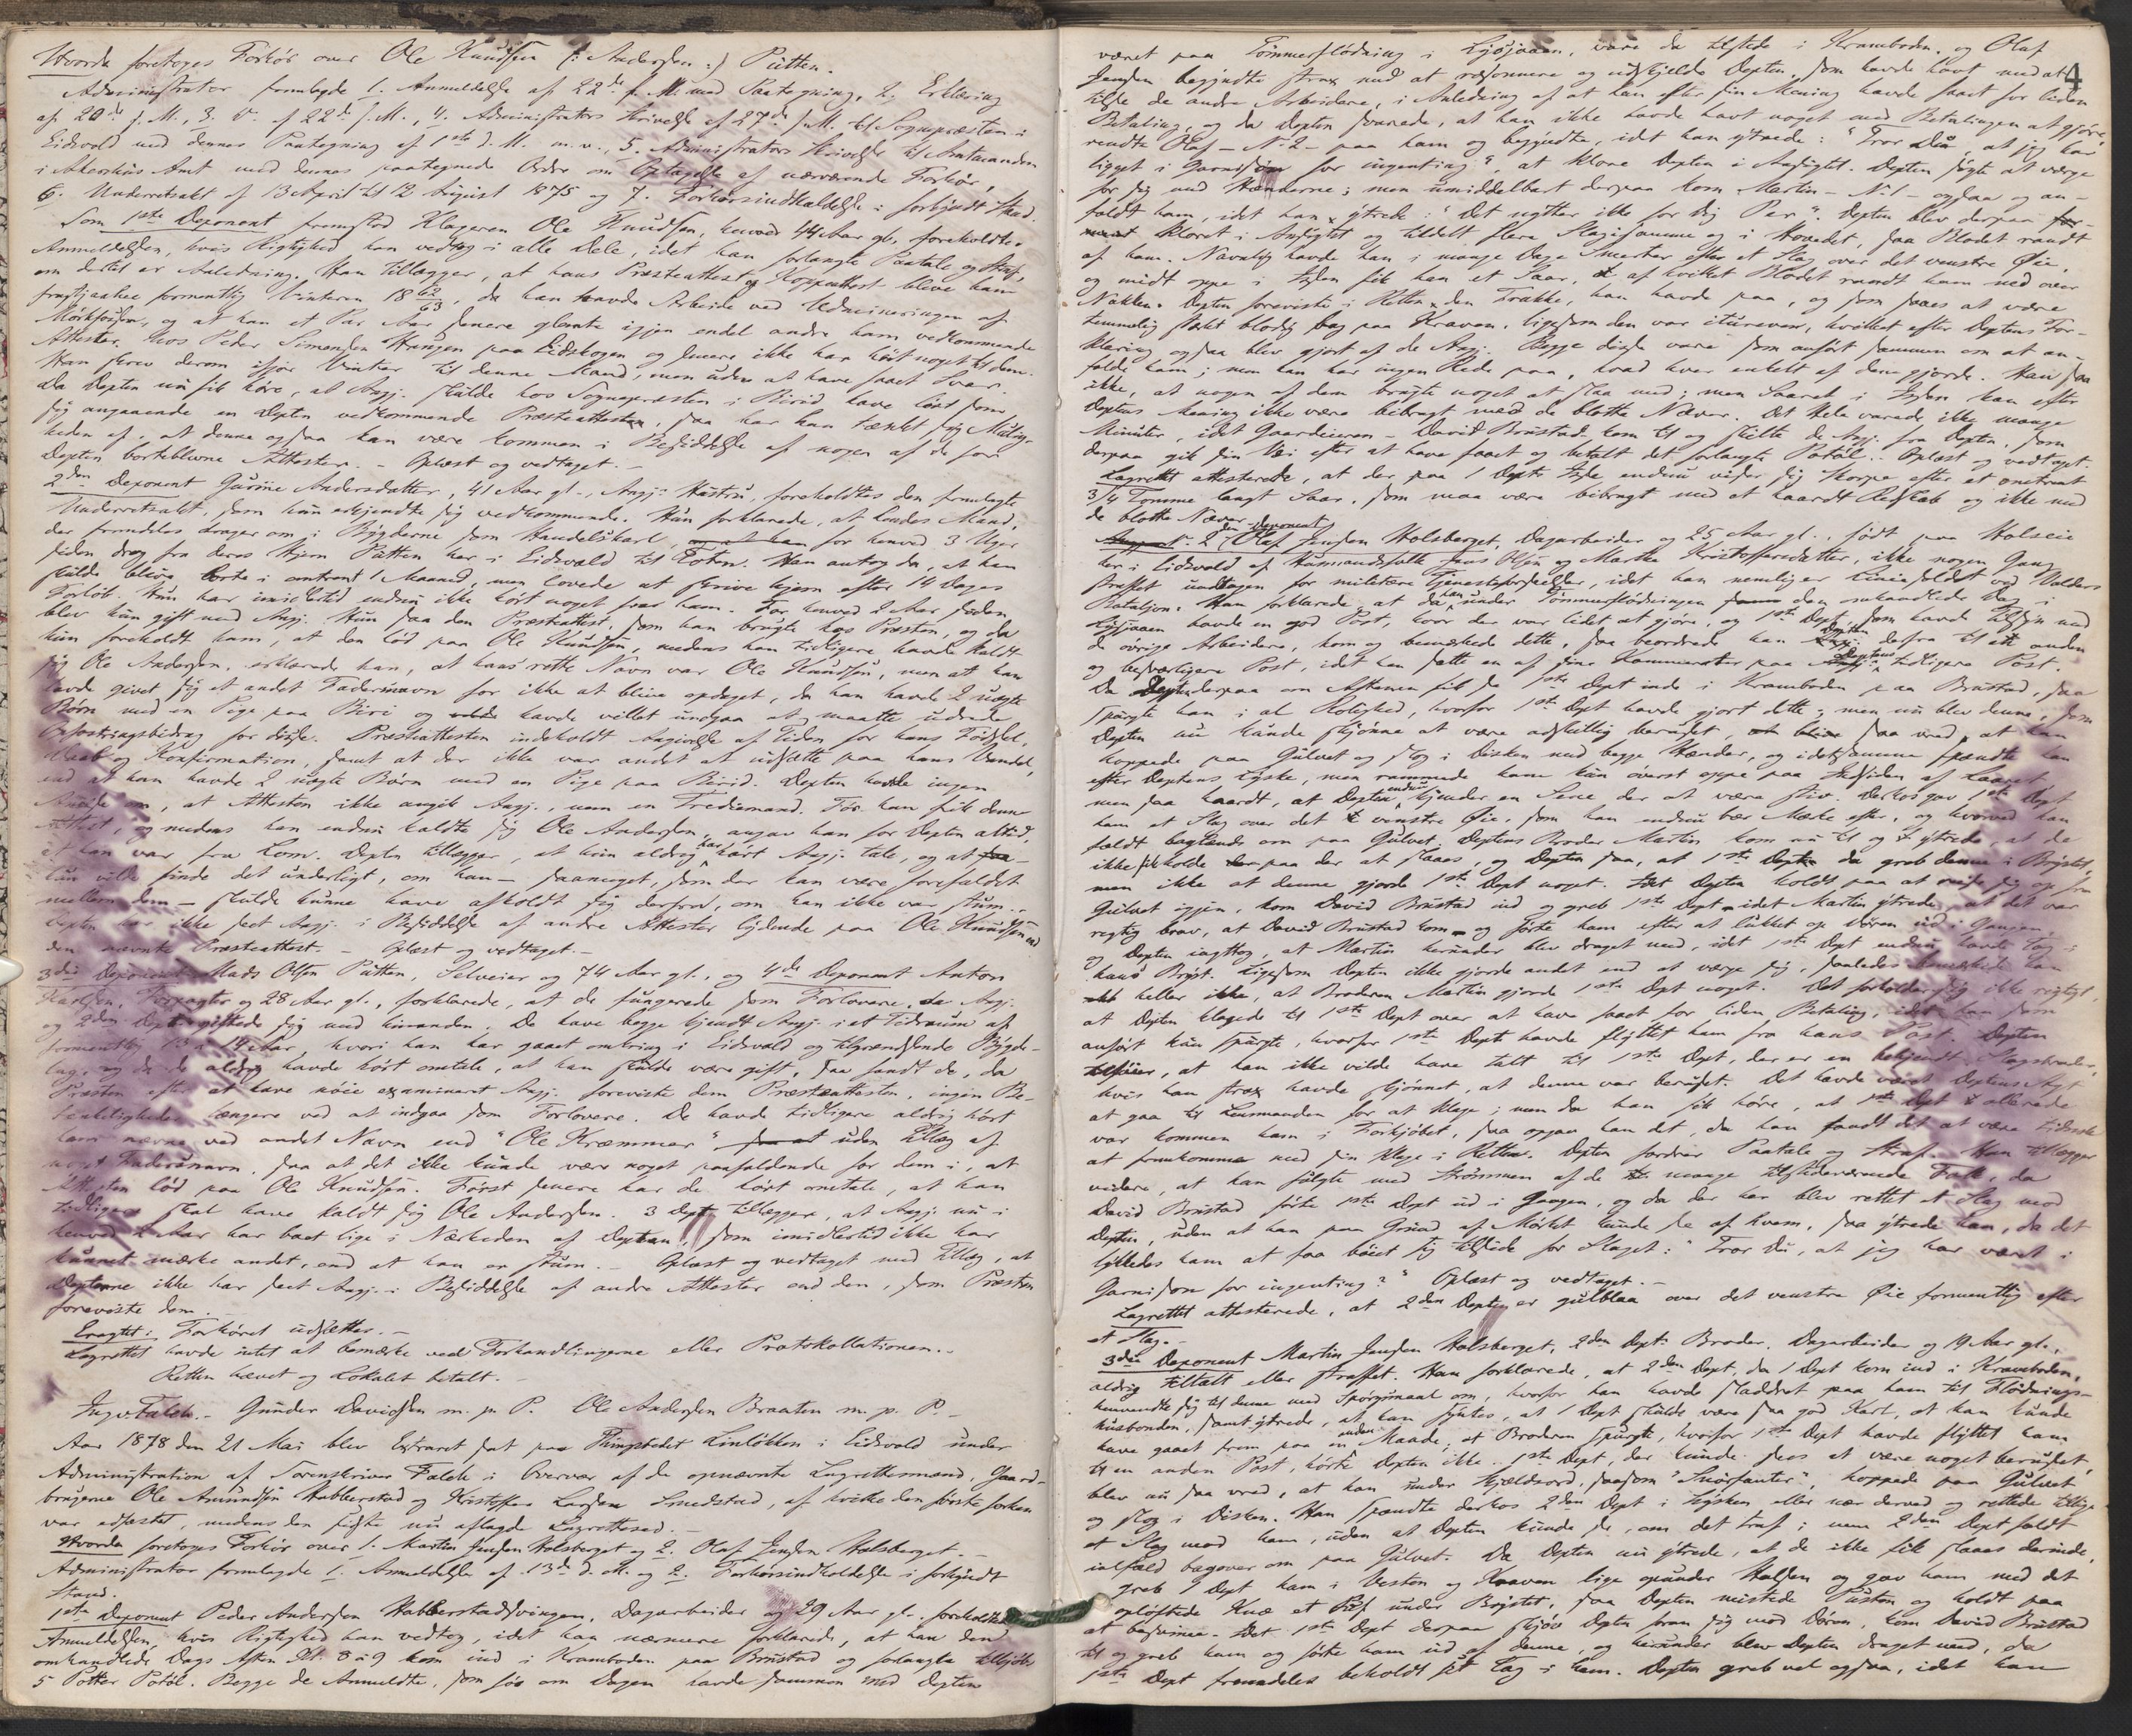 Hvorda foretoges Forhør over Ole Knudsen (: Andersen :) Putten.
Administrator fremlagde 1. Anmeldelse af 22de f. M. med Paategning, 2. Erklæring
af 20de f. M., 3. D. af 22de f. M., 4. Administrators Skrivelse af 27de f. M. til Sognepræsten i
Eidsvold med dennes Paategning af 1ste d. M. m. v., 5. Administrators Skrivelse til Amtmanden
i Akershus Amt med dennes paategnede Ordre om Optagelse af nærværende Forhør,
6. Underretsakt af 13 April til 12 August 1875 og 7. Forhørsindkaldelse i forkyndt Stand.
Som 1ste Deponent fremstod Klageren Ole Knudsen, henved 44 Aar gl. foreholdtes
Anmeldelsen, hvis Rigtighed han vedtog i alle Dele, idet han forlangte Paatale og Straf,
om dertil er Anledning. Han tillægger, at hans Præsteattest og Koppeattest bleve ham
frastjaalne formentlig Vinteren 1862/63, da han havde Arbeide ved Udmineringen af
Mørkfossen, og at han et Par Aar senere glemte igjen endel andre ham vedkommende
Attester hos Peder Simensen Hangen paa Eidskogen og senere ikke har hørt noget til dem.
Han skrev derom ifjor Vinter til denne Mand, men uden at have faaet Svar.
Da Depten nu fik høre, at Angj. skulde hos Sognepræsten i Birid have løst som
sig angaaende en Depten vedkommende Præsteattesten, saa har han tænkt sig Mulig-
heden af, at denne ogsaa kan være kommen i Besiddelse af nogen af de for
Depten bortblevne Attester. - Oplæst og vedtaget. -
2den Deponent Gurine Andersdatter, 41 Aar gl., Angj.s Hustru, foreholdtes den fremlagte
Underretsakt, som hun erkjendte sig vedkommende. Hun forklarede, at hendes Mand,
der fremdeles drager om i Bygderne som Handelskarl, for henved 3 Uger
siden drog fra deres Hjem Putten her i Eidsvold til Toten. Han antog da, at han
skulde blive borte i omtrent 1 Maaned, men lovede at skrive hjem efter 14 Dages
Forløb. Hun har imidlertid endnu ikke hørt noget fra ham. For henved 2 Aar siden
blev hun gift med Angj. Hun saa den Præsteattest, som han brugte hos Præsten, og da
hun foreholdt ham, at den lød paa Ole Knudsen, medens han tidligere havde kaldt
sig Ole Andersen, erklærede han, at hans rette Navn var Ole Knudsen, men at han
havde givet sig et andet Fadersnavn for ikke at blive opdaget, da han havde 2 uægte
Børn med en Pige paa Biri og havde villet undgaa at maatte udrede
Opfostringsbidrag for disse. Præsteattesten indeholdt Angivelse af Tiden for hans Fødsel,
Daab og Konfirmation, samt at der ikke var andet at udsætte paa hans Vandel,
end at han havde 2 uægte Børn med en Pige paa Birid. Depten havde ingen
Anelse om, at Attesten ikke angik Angj., men en Trediemand. Før han fik denne
Attest, og medens han endnu kaldte sig Ole Andersen, angav han for Depten altid,
at han var fra Lom. Depten tillægger, at hun aldrig har hørt Angj. tale, og at
hun vilde finde det underligt, om han - saameget, som der kan være forefaldet
mellem dem - skulde kunne have afholdt sig derfra, om han ikke var stum. -
Depten har ikke seet Angj. i Besiddelse af andre Attester lydende paa Ole Knudsen end
den nævnte Præsteattest. - Oplæst og vedtaget. -
3die Deponent Mads Olsen Putten, Selveier og 74 Aar gl., og 4de Deponent Anton
Karlsen, Forpagter og 28 Aar gl., forklarede, at de fungerede som Forlovere, da Angj.
og 2den Dept giftede sig med hinanden. De have begge kjendt Angj. i et Tidsrum af
formentlig 13 à 14 Aar, hvori han har gaaet omkring i Eidsvold og tilgrændsende Bygde-
lag, og da de aldrig havde hørt omtale, at han skulde være gift, saa fandt de, da
Præsten efter at have nøie examineret Angj. foreviste dem Præsteattesten, ingen Be-
tænkeligheder længere ved at indgaa som Forlovere. De havde tidligere aldrig hørt
ham nævne ved andet Navn end "Ole Kræmmer" uden Tillæg af
noget Fadersnavn, saa at det ikke kunde være noget paafaldende for dem i, at
Attesten lød paa Ole Knudsen. Først senere har de hørt omtale, at han
tidligere skal have kaldt sig Ole Andersen. 3 Dept tillægger, at Angj. nu i
henved 2 Aar har boet lige i Nærheden af Depten, som imidlertid ikke har
kunnet mærke andet, end at han er stum. - Oplæst og vedtaget med Tillæg, at
Depterne ikke har seet Angj. i Besiddelse af andre Attester end den, som Præsten
foreviste dem.
Eragtet: Forhøret udsættes. -
Lagrettet havde intet at bemærke ved Forhandlingerne eller Protokollationen. -
Retten hævet og Lokalet betalt. -
Ingv. Falch. - Gunder Davidsen m. p. P. Ole Andersen Braaten m. p. P. -
Aar 1878 den 21 Mai blev Extraret sat paa Thingstedet Linløkken i Eidsvold under
Administration af Sorenskriver Falch i Overvær af de opnævnte Lagrettesmænd, Gaard-
brugerne Ole Amundsen Habberstad og Kristoffer Larsen Smedstad, af hvilke den første forhen
var edfæstet, medens den sidste nu aflagde Lagrettesed. -
Hvorda foretoges Forhør over 1. Martin Jensen Holsberget og 2. Olaf Jensen Holsberget. -
Administrator fremlagde 1. Anmeldelse af 13de d. M. og 2. Forhørsindkaldelse i forkyndt
Stand.
1ste Deponent Peder Andersen Habberstadsvingen, Dagarbeider og 29 Aar gl. foreholdtes
Anmeldelsen, hvis Rigtighed han vedtog, idet han nærmere forklarede, at han den
omhandlede Dags Aften Kl. 8 à 9 kom ind i Kramboden paa Brustad og forlangte tilkjøbs
5 Potter Potøl. Begge de Anmeldte, som før om Dagen havde sammen med Depten
4
været paa Tømmerflødning i Ljøsaaen, vare da tilstede i Kramboden, og Olaf
Jensen begyndte strax med at ræsonnere og udskjelde Depten, som havde havt med at
tilse de andre Arbeidere, i Anledning af at han efter sin Mening havde faaet for liden
Betaling, og da Depten svarede, at han ikke havde havt noget med Betalingen at gjøre,
rendte Olaf - No 2 - paa ham og begyndte, idet han ytrede: "Tror Du, at jeg har
ligget i Garnison for ingenting?", at klore Depten i Ansigtet. Depten søgte at værge
for sig med Hænderne; men umiddelbart derpaa kom Martin - No 1 - ogsaa og an-
faldt ham, idet han ytrede: "Det nytter ikke for dig Per". Depten blev derpaa
kloret i Ansigtet og tildelt flere Slag samme og i Hovedet, saa Blodet randt
af ham. Navnlig havde han i mange Dage Smerter efter et Slag over det venstre Øie,
og midt oppe i Issen fik han et Saar, af hvilket Blodet randt ham ned over
Nakken. Depten foreviste i Retten den Trøkke, han havde paa, og som saaes at være
temmelig stærkt blodig bag paa Kraven, ligesom den var itureven, hvilket efter Deptens For-
klaring ogsaa blev gjort af de Angj. Begge disse vare som anført sammen om at an-
falde ham; men han har ingen Rede paa, hvad hver enkelt af dem gjorde. Han saa
ikke, at nogen af dem brugte noget at slaa med; men Saaret i Issen kan efter
Deptens Mening ikke være bibragt med de blotte Næver. Det hele varede ikke mange
Minuter, idet Gaardeieren - David Brustad kom til og skilte de Angj. fra Depten, som
derpaa gik sin Vei efter at have faaet og betalt det forlangte Potøl. - Oplæst og vedtaget.
Lagrettet attesterede, at der paa 1 Depts Isse endnu viser sig Skorpe efter et omtrent
3/4 Tomme langt Saar, som maa være bibragt med et haardt Redskab og ikke med
de blotte Næver.
2den Deponent Olaf Jensen Holsberget, Dagarbeider og 25 Aar gl., født paa Holseie
her i Eidsvold af Husmandsfolk Jens Olsen og Marthe Kristoffersdatter, ikke nogen Gang
straffet undtagen for militære Tjenesteforseelser, idet han nemlig er Liniesoldat ved Valders
Bataljon. Han forklarede, at da han under Tømmerflødningen den omhandlede Dag i
Ljøsaaen havde en god Post, hvor der var lidet at gjøre, og 1ste Dept, som havde Tilsyn med
de øvrige Arbeidere, kom og bemærkede dette, saa beordrede han Depten derfra til en anden
og besværligere Post, idet han satte en af sine Kammerater paa Deptens tidligere Post.
Da Depten derpaa om Aftenen fik se 1ste Dept inde i Kramboden paa Brustad, saa
spurgte han i al Rolighed, hvorfor 1ste Dept havde gjort dette; men nu blev denne, som
Depten nu kunde skjønne at være adskillig beruset, saa vred, at han
hoppede paa Gulvet og slog i Disken med begge Hænder, og idetsamme spændte han
efter Deptens Lyske, men rammede ham kun øverst oppe paa Indsiden af Laaret,
men saa haardt, at Depten endnu kjender en Sene der at være stiv. Derhos gav 1ste Dept
ham et Slag over det venstre Øie, som han endnu bær Mærke efter, og hvorved han
faldt baglænds om paa Gulvet. Deptens Broder Martin kom nu til og ytrede, at de
ikke fik holde paa der at slaaes, og Depten saa, at 1ste Dept da greb denne i Brystet,
men ikke at denne gjorde 1ste Dept noget. Idet Depten holdt paa at reise sig op fra
Gulvet igjen, kom David Brustad ind og greb 1ste Dept, idet Martin ytrede, at det var
rigtig brav, at David Brustad kom og førte ham efter at lukket op Døren ud i Gangen,
og Depten iagttog, at Martin herunder blev draget med, idet 1ste Dept endnu havde Tag i
hans Bryst. Ligesom Depten ikke gjorde andet end at værge sig, saaledes bemærkede han
heller ikke, at Broderen Martin gjorde 1ste Dept noget. Det forholder sig ikke rigtigt,
at Depten klagede til 1ste Dept over at have faaet for liden Betaling, idet han som
anført kun spurgte, hvorfor 1ste Dept havde flyttet ham fra hans Post. Depten
tilføier, at han ikke vilde have talt til 1ste Dept, der er en bekjendt Slagsbroder,
hvis han strax havde skjønnet, at denne var beruset. Det havde været Deptens Agt
at gaa til Lensmanden for at klage; men da han fik høre, at 1ste Dept allerede
var kommen ham i Forkjøbet, saa opgav han det, da han fandt det at være tidsnok
at fremkomme med sin Klage i Retten. Depten fordrer Paatale og Straf. Han tillægger
videre, at han fulgte med Strømmen af de mange tilstedeværende Folk, da
David Brustad førte 1ste Dept ud i Gangen, og da der her blev rettet et Slag mod
Depten, uden at han paa Grund af Mørket kunde se af hvem, saa ytrede han, da det
lykkedes ham at faa bøiet sig tilside for Slaget: "Tror Du, at jeg har været i
Garnison for ingenting?" Oplæst og vedtaget. -
Lagrettet attesterede, at 2den Depten er gulblaa over det venstre Øie formentlig efter
et Slag. -
3die Deponent Martin Jensen Holsberget, 2den Depts Broder, Dagarbeider og 19 Aar gl.,
aldrig tiltalt eller straffet. Han forklarede, at 2den Dept, da 1 Dept kom ind i Kramboden,
henvendte sig til denne med Spørgsmaal om, hvorfor han havde sladdret paa ham til Flødnings-
husbonden, samt ytrede, at han syntes, at 1 Dept skulde være saa god Karl, at han kunde
have gaaet frem paa en anden Maade; at Broderen spurgte, hvorfor 1ste Dept havde flyttet ham
til en anden Post, hørte Depten ikke. 1ste Dept, der kunde sees at være noget beruset,
blev nu saa vred, at han under Skjældsord, saasom "Snørfanter", hoppede paa Gulvet
og slog i Disken. Han spændte derhos 2den Dept i Lysken eller nær derved og rettede tillige
et Slag mod ham, uden at Depten kunde se, om det traf; men 2den Dept faldt
ialfald bagover om paa Gulvet. Da Depten nu ytrede, at de ikke fik slaaes derinde,
greb 1 Dept ham i Vesten og Kraven lige opunder Halsen og gav ham med det
opløftede Knæ et Stød under Brystet, saa Depten mistede Pusten og holdt paa
at besvime. Idet 1ste Dept derpaa skjøv Depten fram sig mod Døren, kom David Brustad
til og greb ham og førte ham ud af denne, og herunder blev Depten draget med, da
1ste Dept fremdeles beholdt sit Tag i ham. Depten greb vel ogsaa, idet han